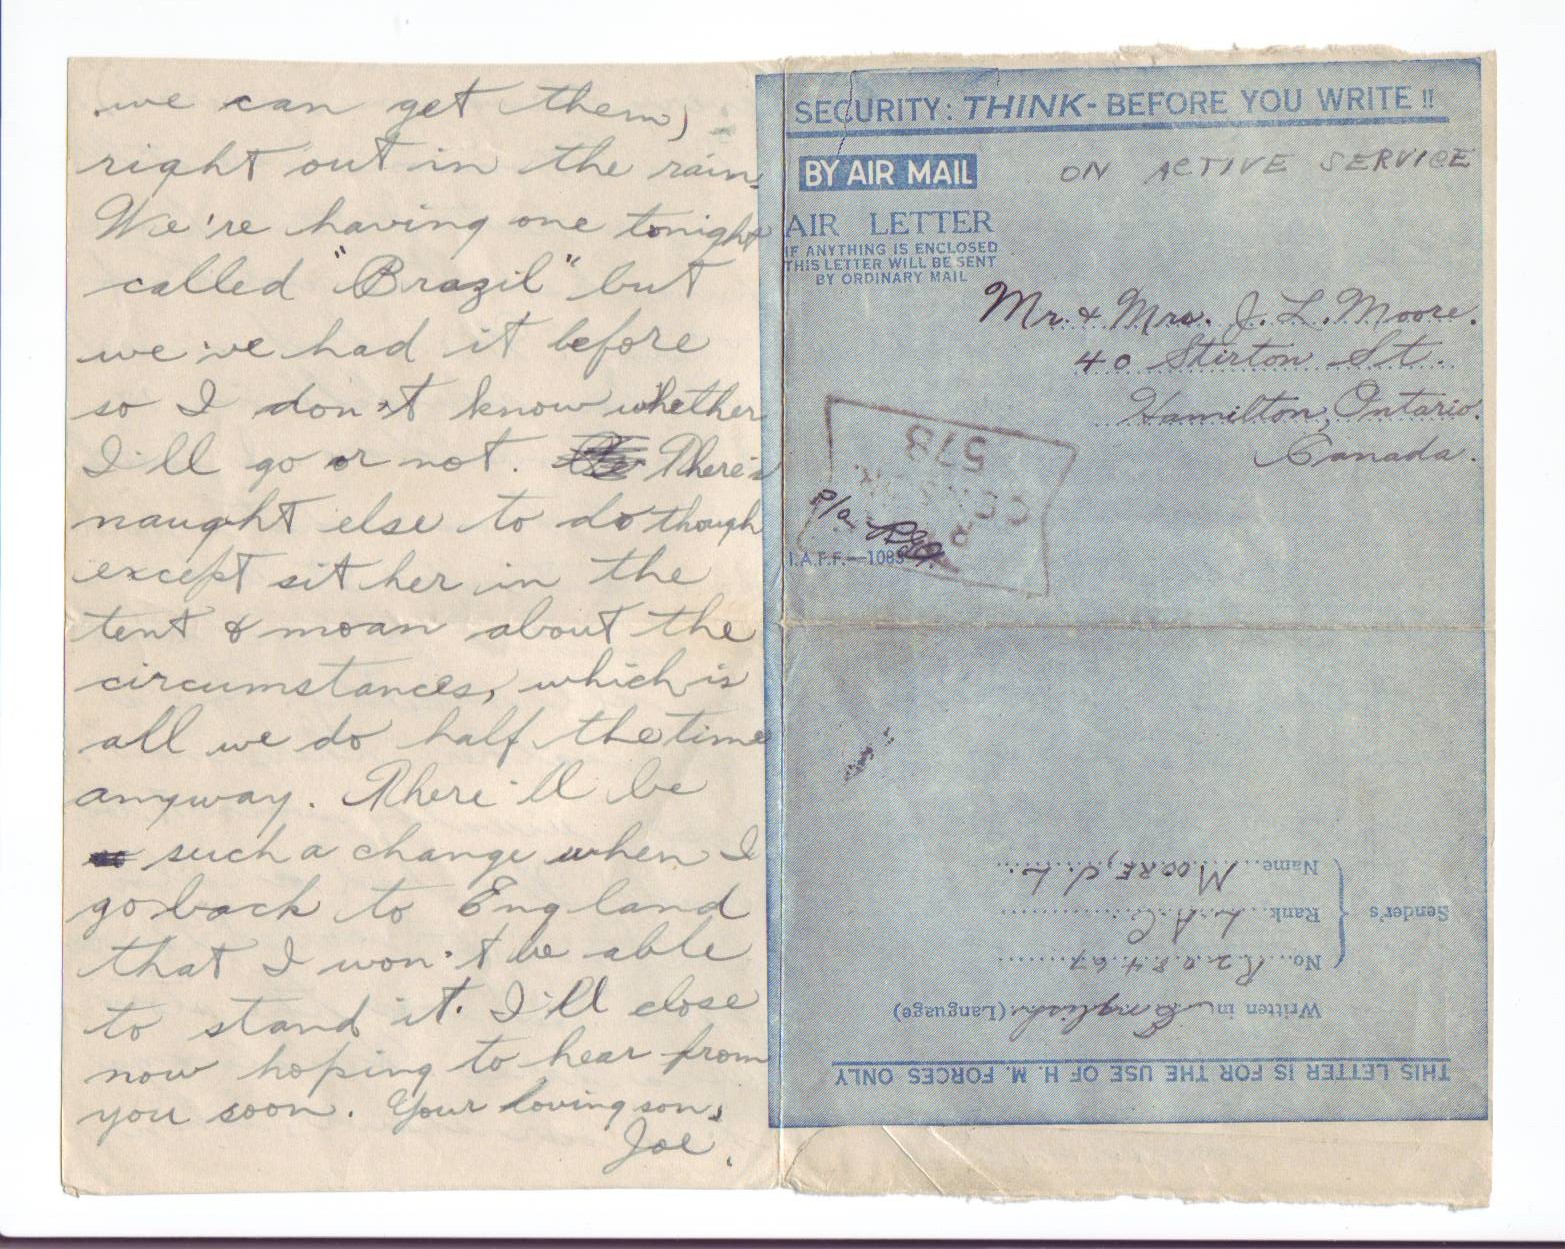 we can get them)
right out in the rain.
We're having one tonight
called "Brazil" but
we've had it before
so I don't know whether
I'll go or not. There's
naught else to do though
except sit her in the
tent & moan about the
circumstances, which is
all we do half the time
anyway. There'll be
such a change when I
go back to England
that I won't be able
to stand it. I'll close
now hoping to hear from
you soon. Your loving son,
Joe.
SECURITY: THINK - BEFORE YOU WRITE !!
BY AIR MAIL
ON ACTIVE SERVICE
AIR LETTER
IF ANYTHING IS ENCLOSED
THIS LETTER WILL BE SENT
BY ORDINARY MAIL
Mr. & Mrs. J. L. Moore.
40 Stirton St.
Hamilton, Ontario.
Canada.
578
I.A.F.F.—1083
THIS LETTER IS FOR THE USE OF H. M. FORCES ONLY
Written in English (Language)
No. R.208467
Sender's
Rank L.A.C.
Name MOORE, J. L.